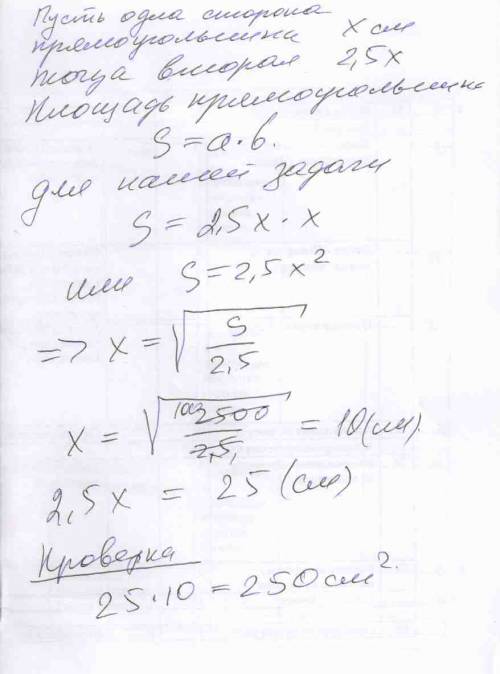 Пусть одна сторона
прямоугольника x см
тогда вторая 2,5x
Площадь прямоугольника
S = a · b.
для нашей задачи
S = 2,5x · x
или S = 2,5x²
=> x = √(S/2,5)
x = √(100 2500/2,5,) = 10 (см).
2,5x = 25 (см)
Проверка
25 · 10 = 250 см².